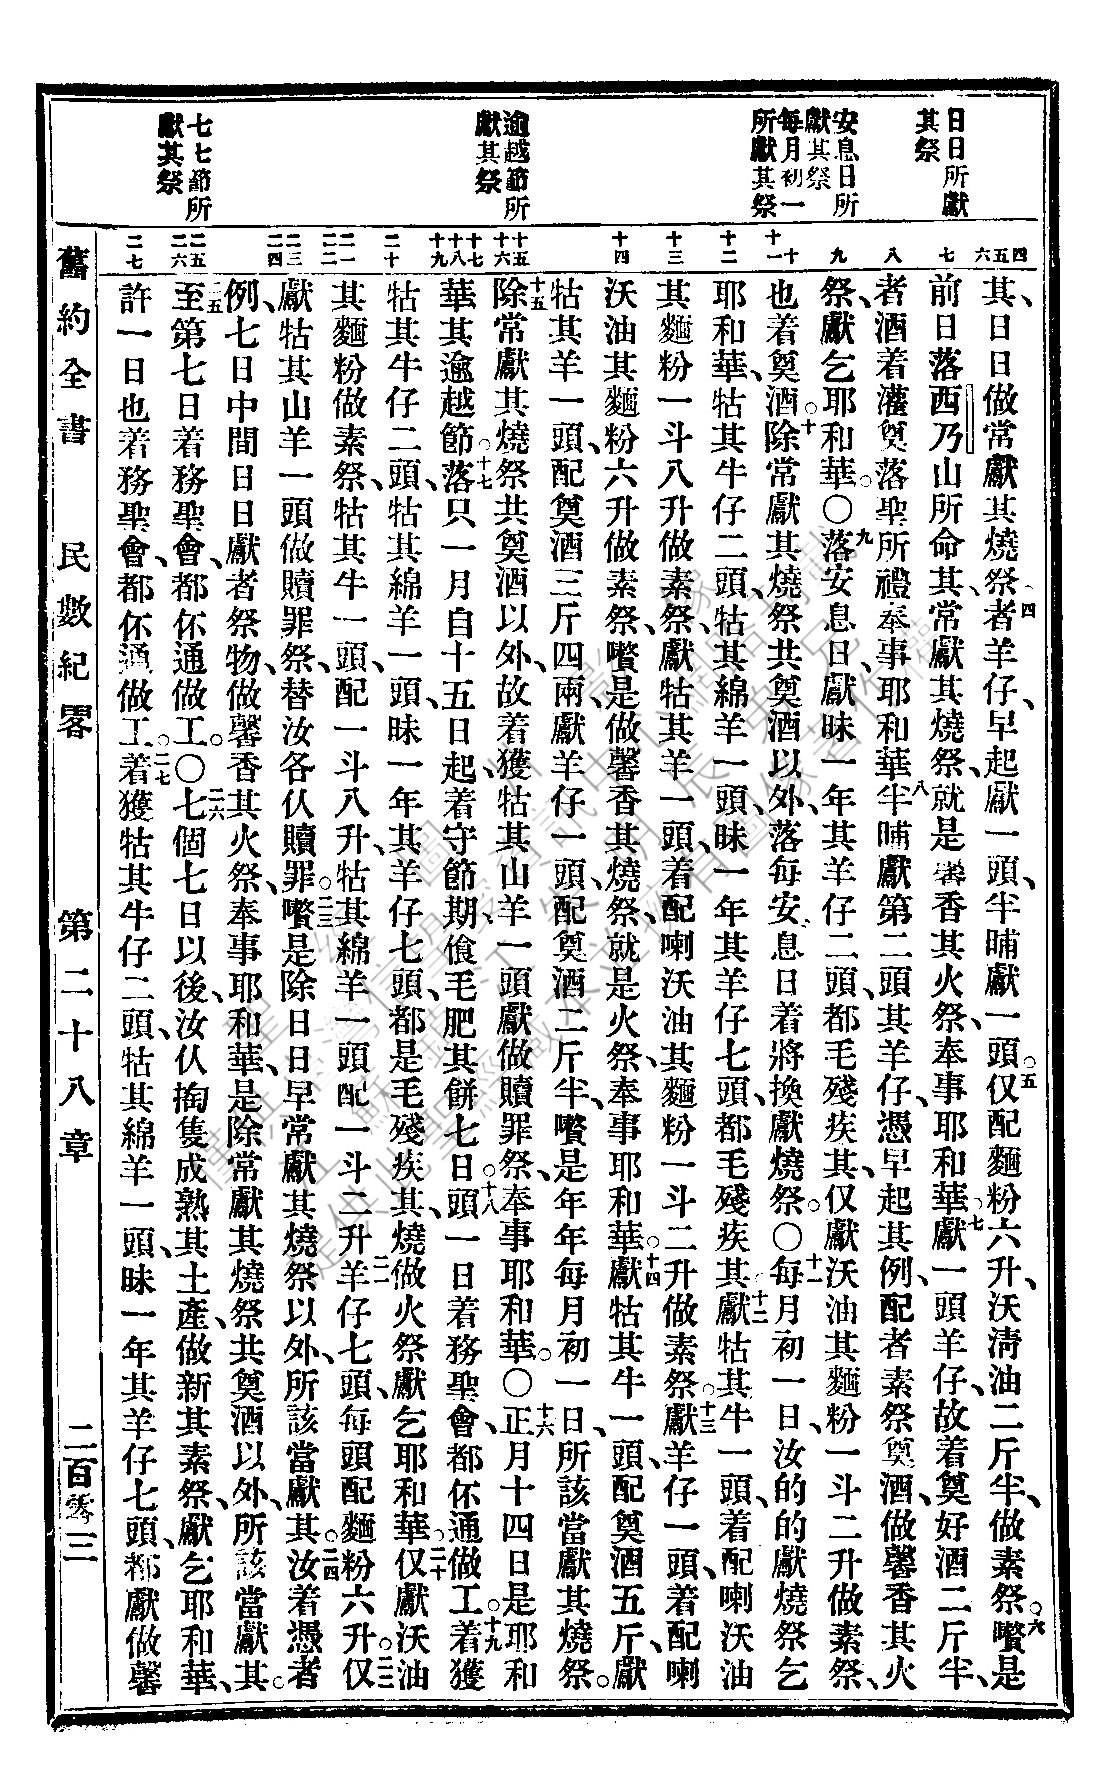 日日所獻
其祭
安息日所
獻其祭
每月初一
所獻其祭
逾越節所
獻其祭
七七節所
獻其祭
四 五 六 七 八 九 十 十一 十二 十三 十四 十五 十六 十七 十八 十九 二十 二一 二二 二三 二四 二五 二六 二七
其、日日做常獻其燒祭、四者羊仔、早起獻一頭、半晡獻一頭。五仅配麵粉六升、沃淸油二斤半、做素祭。六嚽是
前日落西乃山所命其、常獻其燒祭、就是馨香其火祭、奉事耶和華。七獻一頭羊仔、故着奠好酒二斤半、
者酒着灌奠落聖所、禮奉事耶和華。八半晡獻第二頭其羊仔、憑早起其例、配者素祭奠酒、做馨香其火
祭、獻乞耶和華。〇九落安息日、獻昧一年其羊仔二頭、都毛殘疾其、仅獻沃油其麵粉一斗二升做素祭、
也着奠酒。十除常獻其燒祭共奠酒以外、落每安息日着將換獻燒祭。〇十一每月初一日、汝的的獻燒祭乞
耶和華、牯其牛仔二頭、牯其綿羊一頭、昧一年其羊仔七頭、都毛殘疾其。十二獻牯其牛一頭、着配喇沃油
其麵粉一斗八升做素祭、獻牯其羊一頭、着配喇沃油其麵粉一斗二升做素祭。十三獻羊仔一頭、着配喇
沃油其麵粉六升做素祭、嚽是做馨香其燒祭、就是火祭、奉事耶和華。十四獻牯其牛一頭、配奠酒五斤、獻
牯其羊一頭、配奠酒三斤四兩、獻羊仔一頭、配奠酒二斤半、嚽是年年每月初一日、所該當獻其燒祭。
十五除常獻其燒祭共奠酒以外、故着獲牯其山羊一頭、獻做贖罪祭、奉事耶和華。〇十六正月十四日是耶和
華其逾越節。十七落只一月自十五日起、着守節期、飠毛肥其餅七日。十八頭一日着務聖會、都伓通做工。十九着獲
牯其牛仔二頭、牯其綿羊一頭、昧一年其羊仔七頭、都是毛殘疾其、燒做火祭、獻乞耶和華。二十仅獻沃油
其麵粉做素祭、牯其牛一頭、配一斗八升、牯其綿羊一頭、配一斗二升、二一羊仔七頭、每頭配麵粉六升。二二仅
獻牯其山羊一頭做贖罪祭、替汝各仈贖罪。二三嚽是除日日早常獻其燒祭以外、所該當獻其。二四汝着憑者
例、七日中間日日獻者祭物、做馨香其火祭、奉事耶和華、是除常獻其燒祭共奠酒以外、所該當獻其。
二五至第七日着務聖會、都伓通做工。〇二六七個七日以後、汝仈掏隻成熟其土產、做新其素祭、獻乞耶和華、
許一日也着務聖會、都伓通做工。二七着獲牯其牛仔二頭、牯其綿羊一頭、昧一年其羊仔七頭、都獻做馨
舊約全書 民數紀畧 第二十八章 二百零三